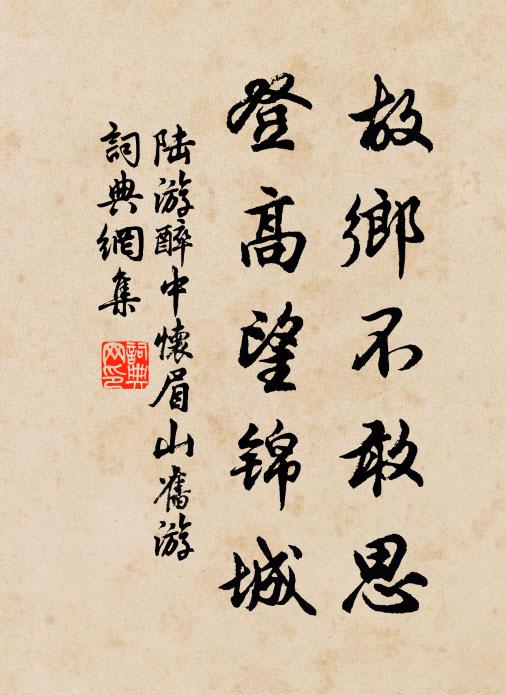 故鄉不敢思
登高望锦城
陆游醉中懷眉山舊游
詞典網集
詞典网印